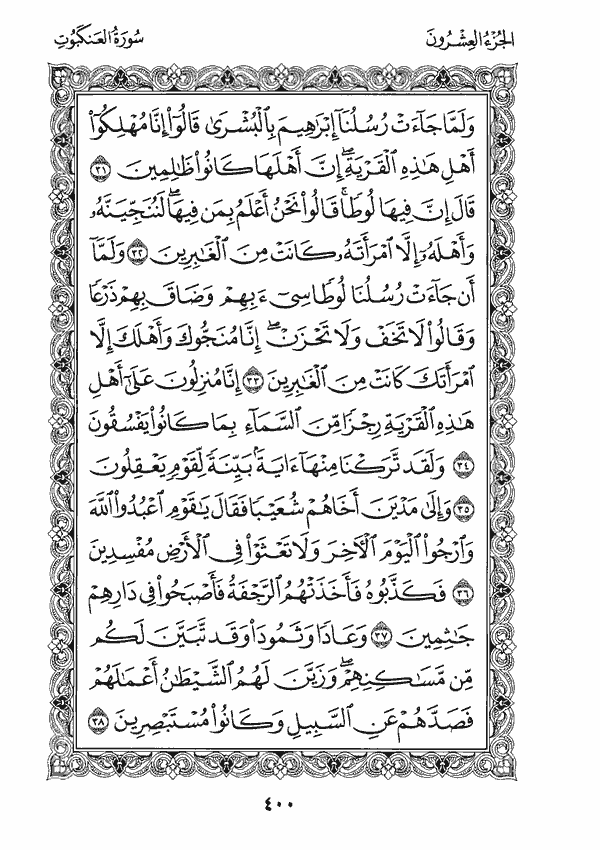 الجُزْءُ العِشْرُونَ
سُورَةُ العَنكَبُوتِ
وَلَمَّا جَآءَتْ رُسُلُنَآ إِبْرَٰهِيمَ بِٱلْبُشْرَىٰ قَالُوٓا۟ إِنَّا مُهْلِكُوٓا۟
أَهْلِ هَٰذِهِ ٱلْقَرْيَةِ ۖ إِنَّ أَهْلَهَا كَانُوا۟ ظَٰلِمِينَ ٣١
قَالَ إِنَّ فِيهَا لُوطًا ۚ قَالُوا۟ نَحْنُ أَعْلَمُ بِمَن فِيهَا ۖ لَنُنَجِّيَنَّهُۥ
وَأَهْلَهُۥٓ إِلَّا ٱمْرَأَتَهُۥ كَانَتْ مِنَ ٱلْغَٰبِرِينَ ٣٢ وَلَمَّآ
أَن جَآءَتْ رُسُلُنَا لُوطًا سِىٓءَ بِهِمْ وَضَاقَ بِهِمْ ذَرْعًا
وَقَالُوا۟ لَا تَخَفْ وَلَا تَحْزَنْ ۖ إِنَّا مُنَجُّوكَ وَأَهْلَكَ إِلَّا
ٱمْرَأَتَكَ كَانَتْ مِنَ ٱلْغَٰبِرِينَ ٣٣ إِنَّا مُنزِلُونَ عَلَىٰٓ أَهْلِ
هَٰذِهِ ٱلْقَرْيَةِ رِجْزًا مِّنَ ٱلسَّمَآءِ بِمَا كَانُوا۟ يَفْسُقُونَ
٣٤ وَلَقَد تَّرَكْنَا مِنْهَآ ءَايَةًۢ بَيِّنَةً لِّقَوْمٍ يَعْقِلُونَ
٣٥ وَإِلَىٰ مَدْيَنَ أَخَاهُمْ شُعَيْبًا فَقَالَ يَٰقَوْمِ ٱعْبُدُوا۟ ٱللَّهَ
وَٱرْجُوا۟ ٱلْيَوْمَ ٱلْءَاخِرَ وَلَا تَعْثَوْا۟ فِى ٱلْأَرْضِ مُفْسِدِينَ
٣٦ فَكَذَّبُوهُ فَأَخَذَتْهُمُ ٱلرَّجْفَةُ فَأَصْبَحُوا۟ فِى دَارِهِمْ
جَٰثِمِينَ ٣٧ وَعَادًا وَثَمُودَا۟ وَقَد تَّبَيَّنَ لَكُم
مِّن مَّسَٰكِنِهِمْ ۖ وَزَيَّنَ لَهُمُ ٱلشَّيْطَٰنُ أَعْمَٰلَهُمْ
فَصَدَّهُمْ عَنِ ٱلسَّبِيلِ وَكَانُوا۟ مُسْتَبْصِرِينَ ٣٨
٤٠٠